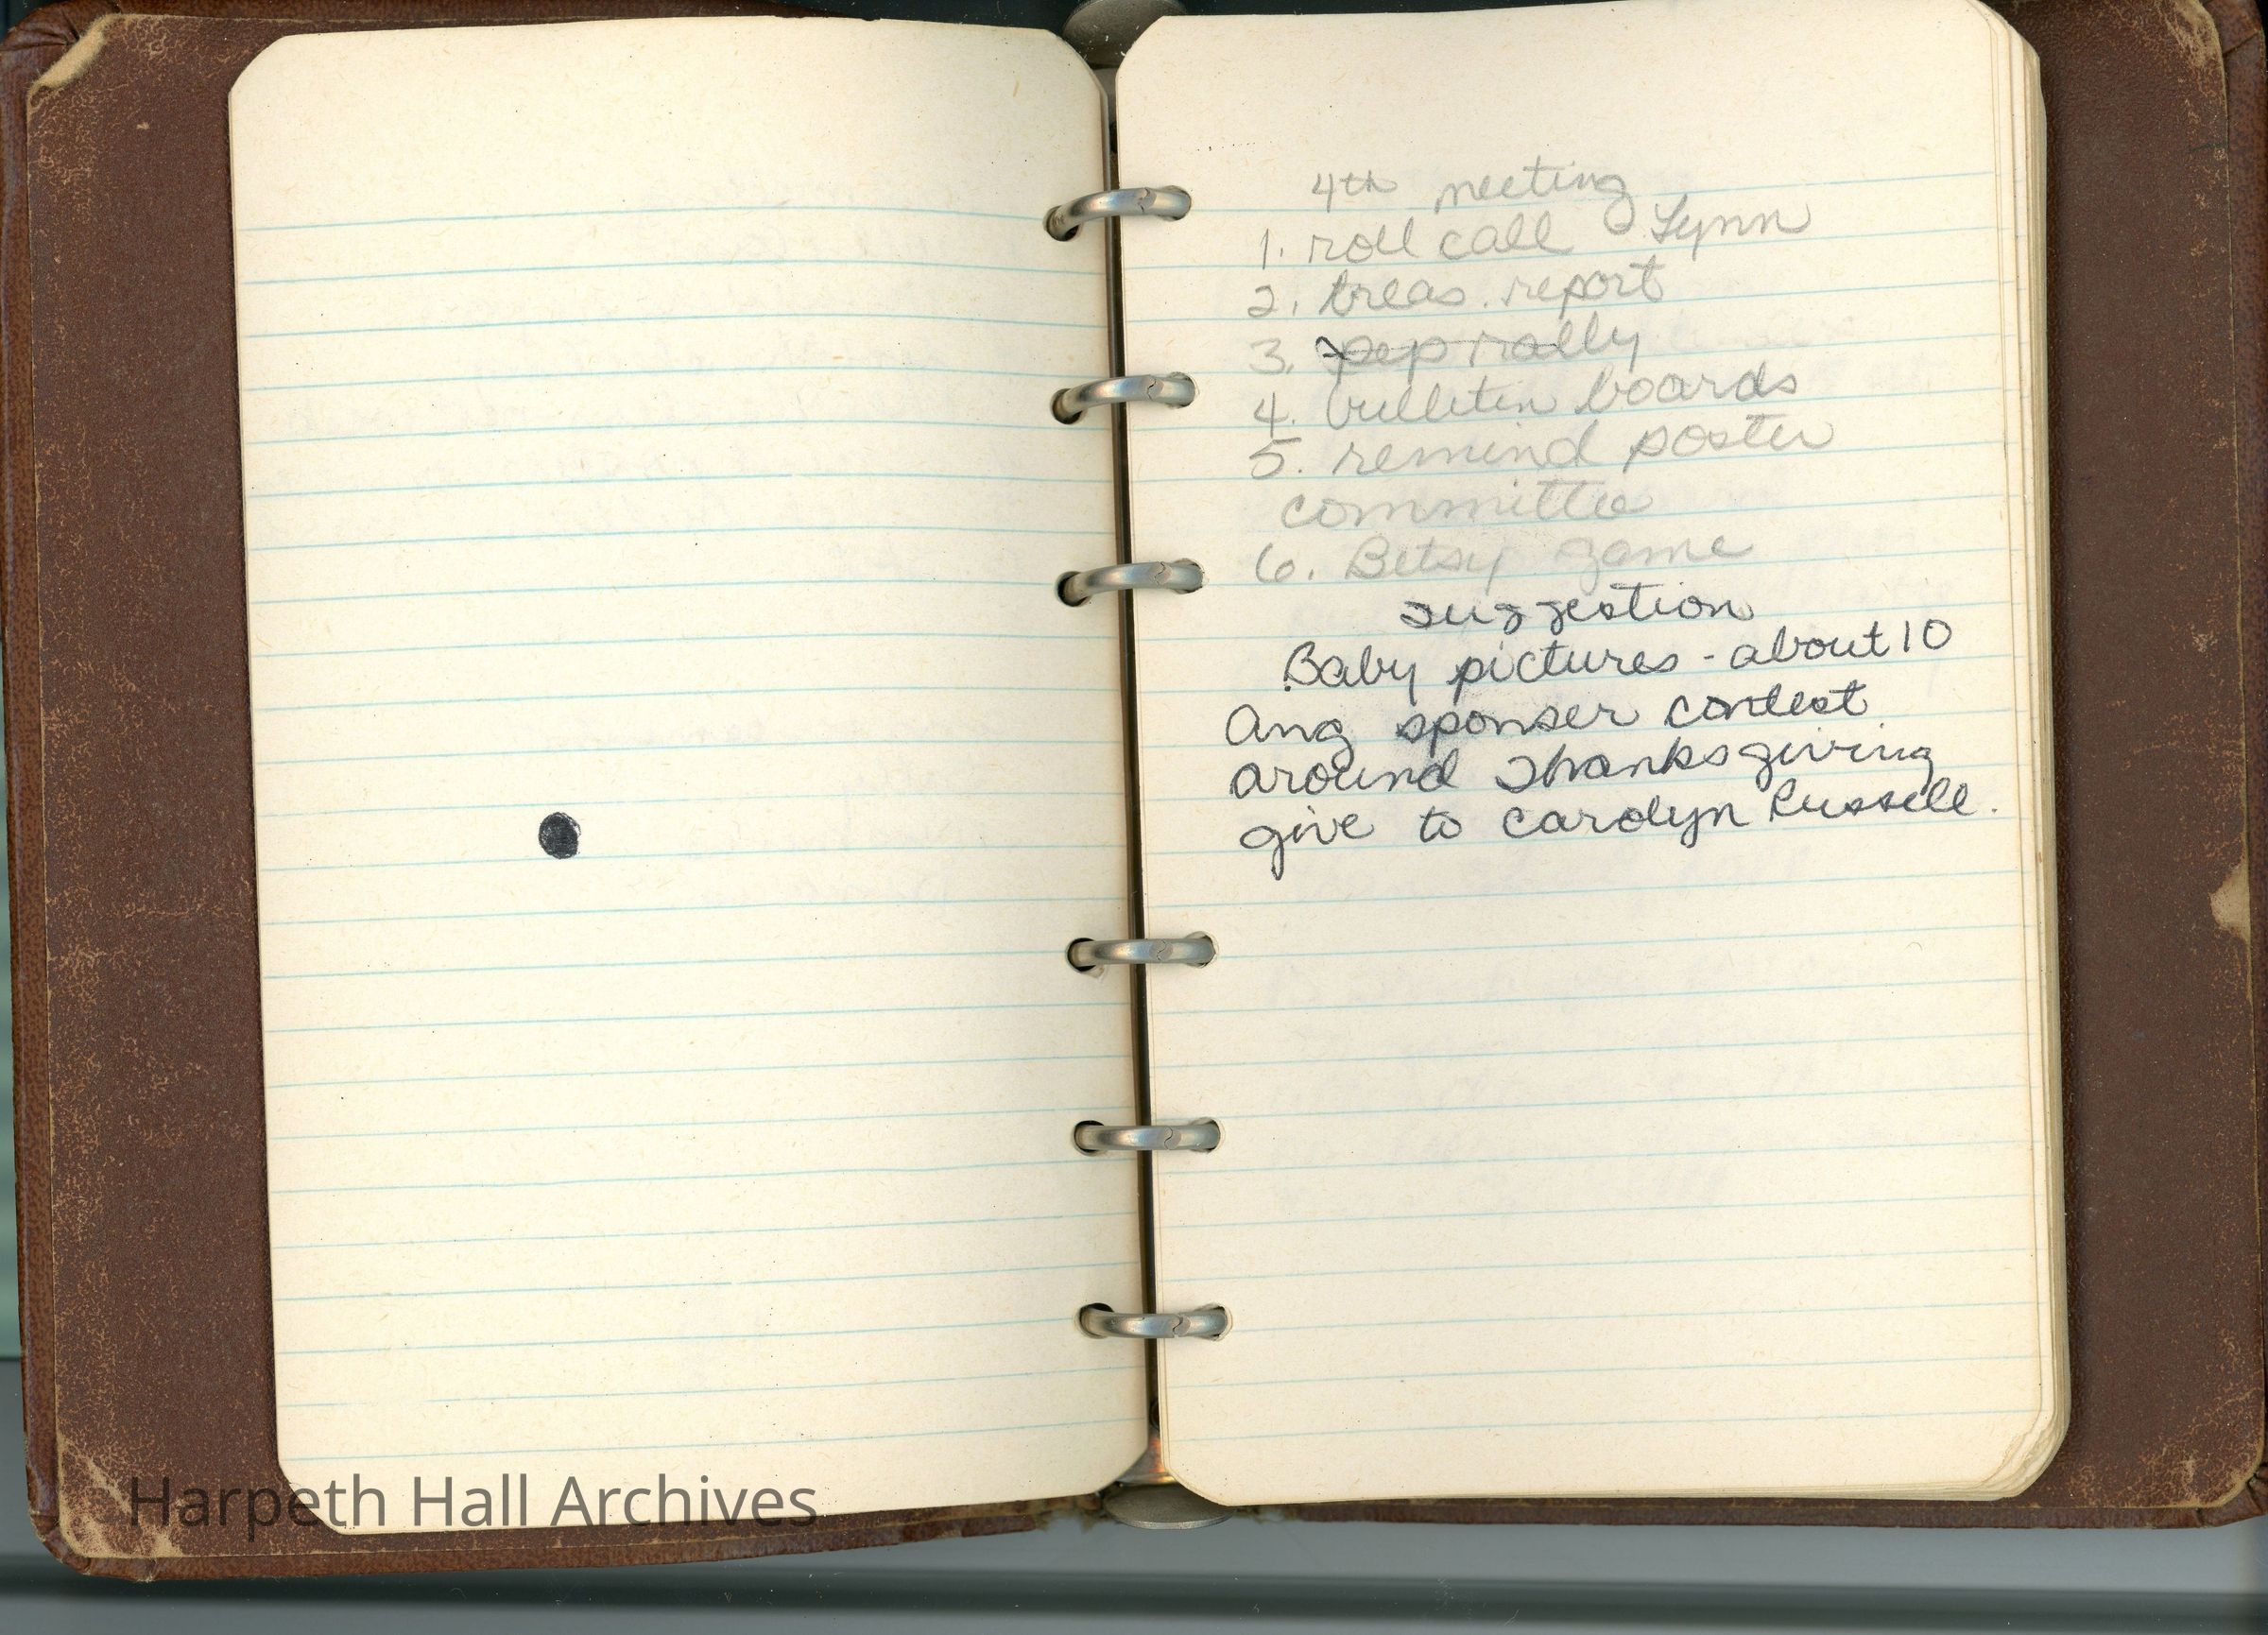 4th meeting
1. roll call Lynn
2. treas. report
3. pep rally
4. bulletin boards
5. remind poster
committee
6. Betsy game
suggestion
Baby pictures - about 10
Ang sponser contest
around Thanksgiving
give to Carolyn Russell.
Harpeth Hall Archives